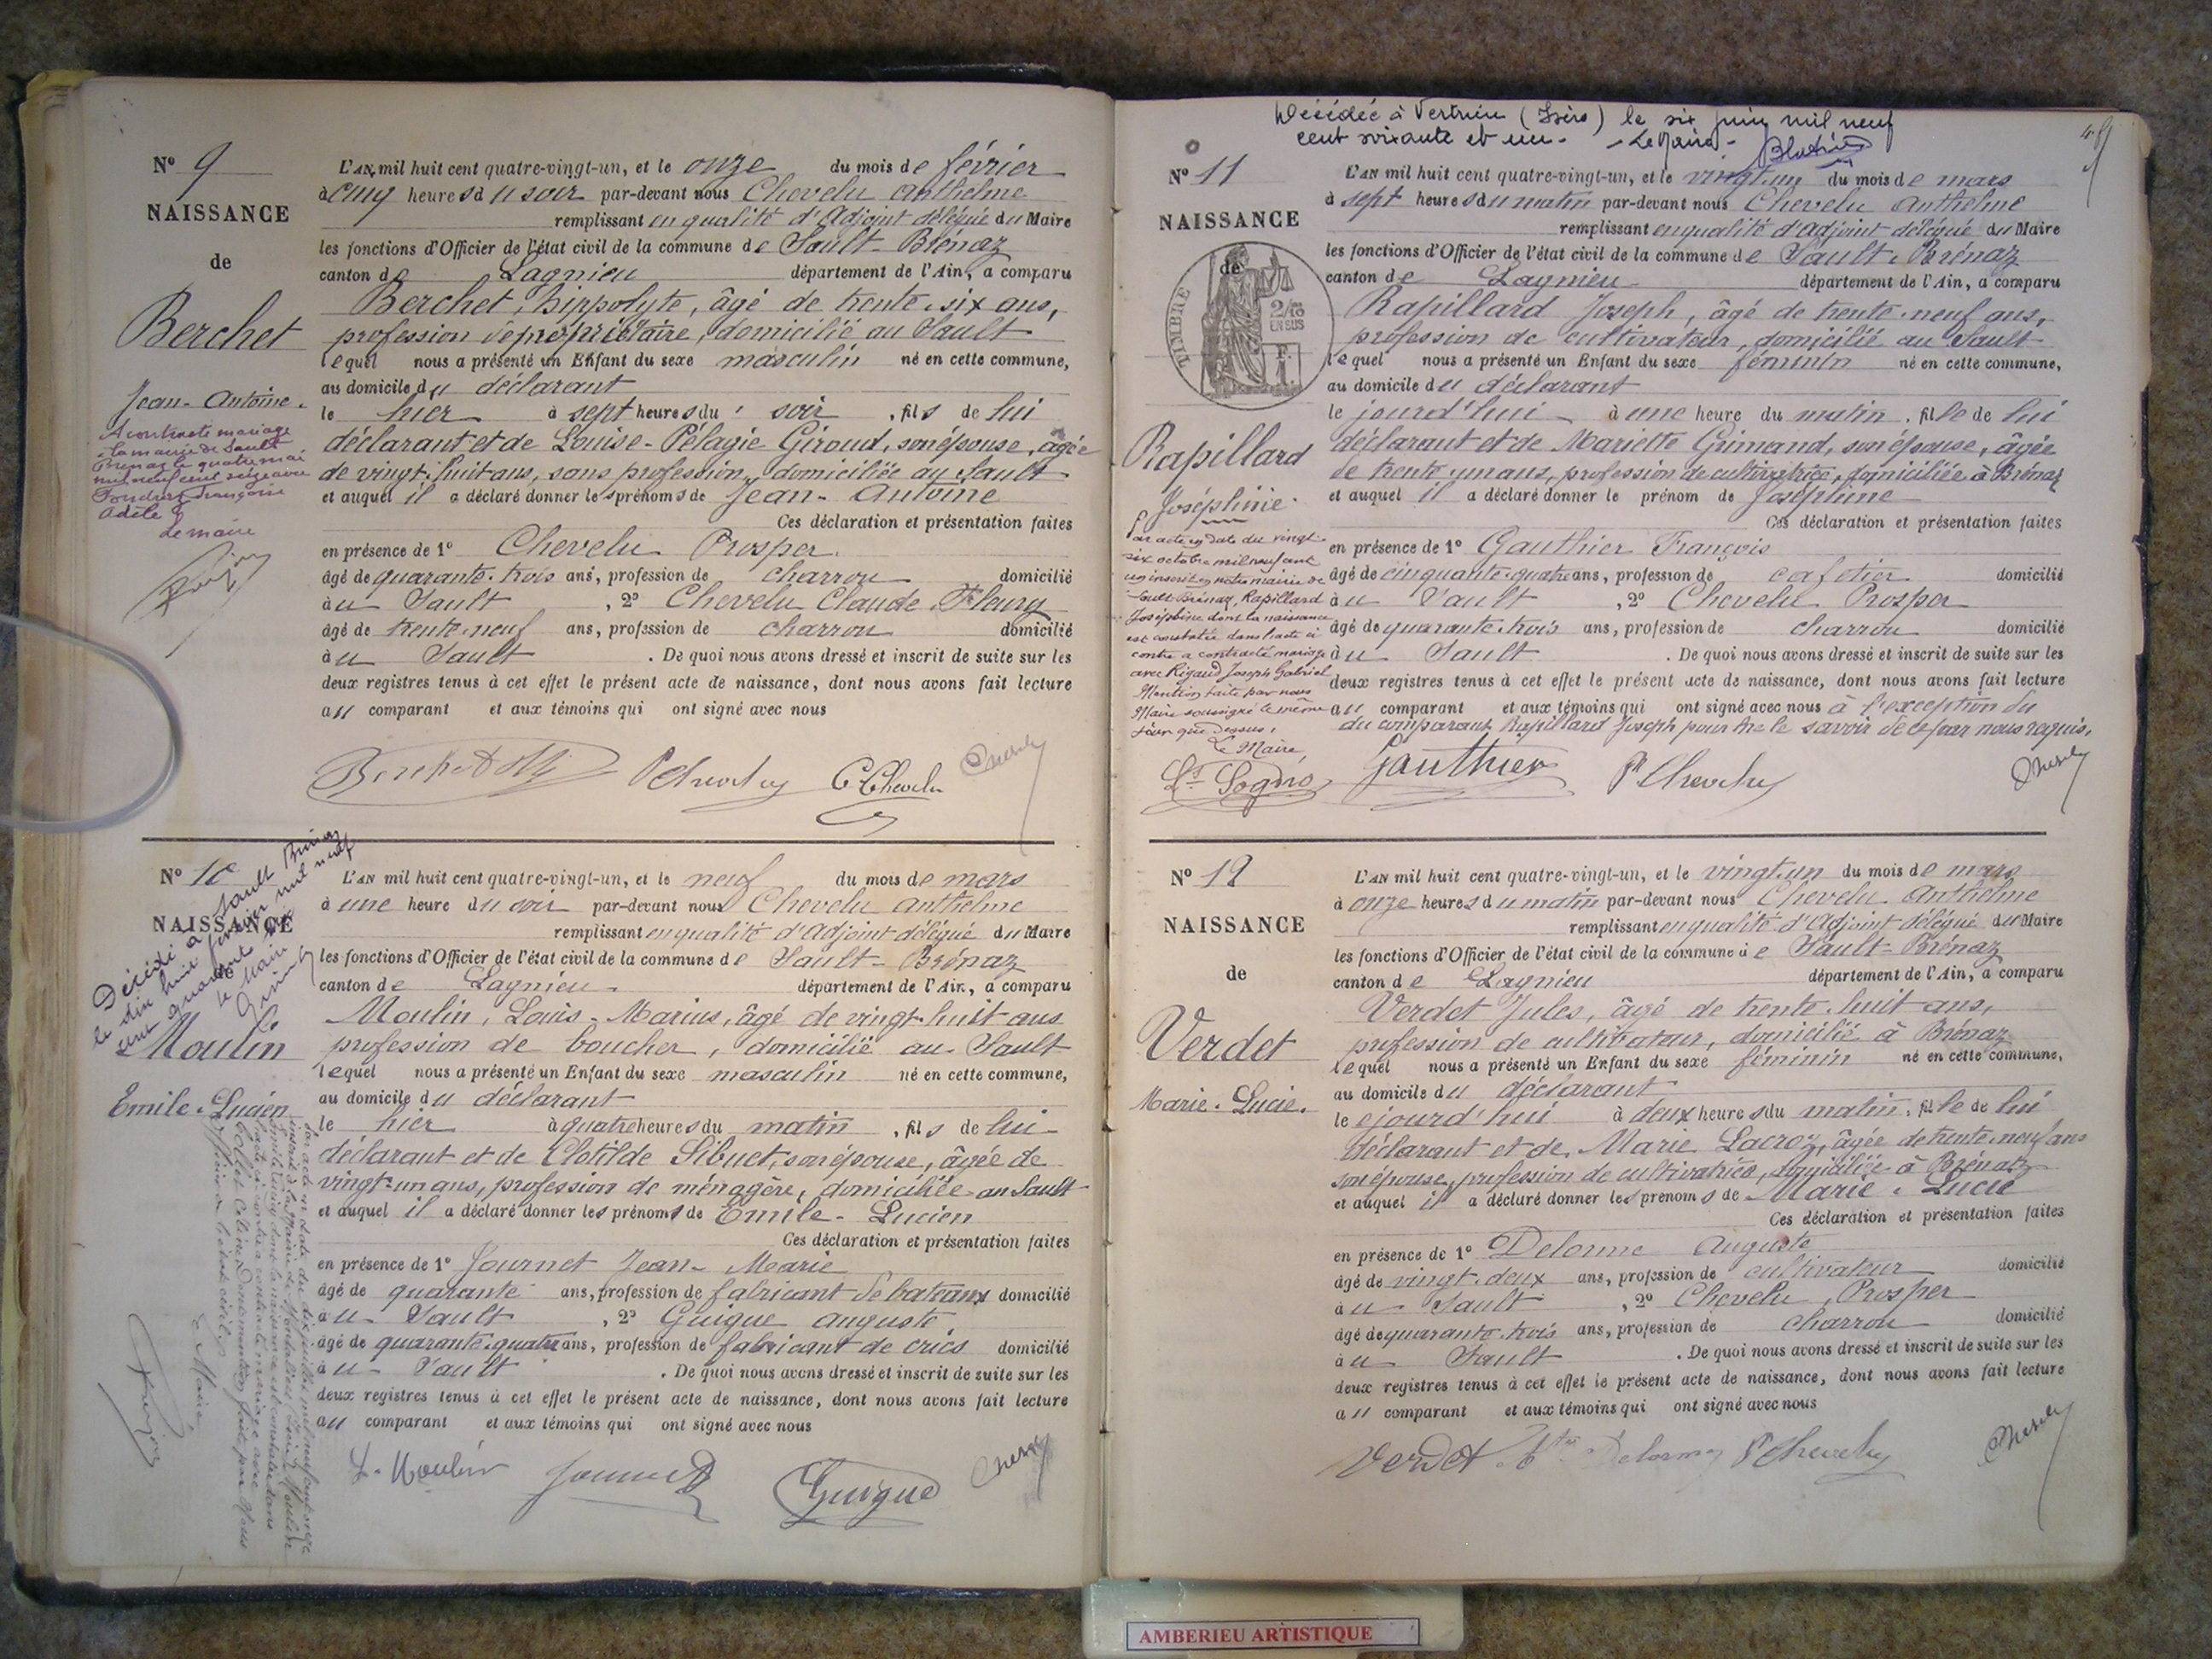 N° 9
NAISSANCE
de
Berchet
Jean-Antoine.
A contracté mariage
à la mairie de Sault
Brénaz le quatre mai
mil neuf cent seize avec
Françoise
Adèle
Le maire
L'AN mil huit cent quatre-vingt-un, et le onze du mois de février
à cinq heures du soir par-devant nous Chevelu Anthelme
remplissant en qualité d'Adjoint délégué du Maire
les fonctions d'Officier de l'état civil de la commune de Sault-Brénaz
canton de Lagnieu département de l'Ain, a comparu
Berchet, hippolyte, âgé de trente-six ans,
profession de propriétaire, domicilié au Sault
lequel nous a présenté un Enfant du sexe masculin né en cette commune,
au domicile du déclarant
le hier à sept heures du soir, fils de lui
déclarant et de Louise-Pélagie Giroud, son épouse, âgée
de vingt-huit ans, sans profession, domiciliée au Sault
et auquel il a déclaré donner les prénoms de Jean-Antoine
Ces déclaration et présentation faites
en présence de 1° Chevelu Prosper
âgé de quarante-trois ans, profession de charron domicilié
au Sault, 2° Chevelu Claude Fleury
âgé de trente-neuf ans, profession de charron domicilié
au Sault. De quoi nous avons dressé et inscrit de suite sur les
deux registres tenus à cet effet le présent acte de naissance, dont nous avons fait lecture
au comparant et aux témoins qui ont signé avec nous
P Chevelu C Chevelu
N° 10
NAISSANCE
Décédé à Sault Brénaz
le dix huit février mil neuf
cent quarante
le Maire
Moulin
Emile-Lucien
L'AN mil huit cent quatre-vingt-un, et le neuf du mois de mars
à une heure du soir par-devant nous Chevelu Anthelme
remplissant en qualité d'Adjoint délégué du Maire
les fonctions d'Officier de l'état civil de la commune de Sault-Brénaz
canton de Lagnieu département de l'Ain, a comparu
Moulin, Louis-Marius, âgé de vingt-huit ans
profession de boucher, domicilié au Sault
lequel nous a présenté un Enfant du sexe masculin né en cette commune,
au domicile du déclarant
le hier à quatre heures du matin, fils de lui
déclarant et de Clotilde Sibuet, son épouse, âgée de
vingt-un ans, profession de ménagère, domiciliée au Sault
et auquel il a déclaré donner les prénoms de Emile-Lucien
Ces déclaration et présentation faites
en présence de 1° Journet Jean-Marie
âgé de quarante ans, profession de fabricant de bateaux domicilié
au Sault, 2° Guigue Auguste
âgé de quarante-quatre ans, profession de fabricant de crics domicilié
au Sault. De quoi nous avons dressé et inscrit de suite sur les
deux registres tenus à cet effet le présent acte de naissance, dont nous avons fait lecture
au comparant et aux témoins qui ont signé avec nous
L. Moulin Journet Guigue
Décédée à Vertrieu (Isère) le six juin mil neuf
cent soixante et un. - Le Maire -
N° 11
NAISSANCE
de
TIMBRE
Rapillard
Joséphine.
Par acte en date du vingt
six octobre mil neuf cent
un inscrit en notre mairie de
Sault Brénaz, Rapillard
Joséphine dont la naissance
est constatée dans l'acte ci
contre a contracté mariage
avec Rigaud Joseph Gabriel
Mention faite par nous
Maire soussigné le même
jour que dessus.
Le Maire,
L'AN mil huit cent quatre-vingt-un, et le vingt-un du mois de mars
à sept heures du matin par-devant nous Chevelu Anthelme
remplissant en qualité d'Adjoint délégué du Maire
les fonctions d'Officier de l'état civil de la commune de Sault-Brénaz
canton de Lagnieu département de l'Ain, a comparu
Rapillard Joseph, âgé de trente-neuf ans,
profession de cultivateur, domicilié au Sault
lequel nous a présenté un Enfant du sexe féminin né en cette commune,
au domicile du déclarant
le jourd'hui à une heure du matin, fille de lui
déclarant et de Mariette Grimand, son épouse, âgée
de trente-un ans, profession de cultivatrice, domiciliée à Brénaz
et auquel il a déclaré donner le prénom de Joséphine
Ces déclaration et présentation faites
en présence de 1° Gauthier François
âgé de cinquante-quatre ans, profession de cafetier domicilié
au Sault, 2° Chevelu Prosper
âgé de quarante-trois ans, profession de charron domicilié
au Sault. De quoi nous avons dressé et inscrit de suite sur les
deux registres tenus à cet effet le présent acte de naissance, dont nous avons fait lecture
au comparant et aux témoins qui ont signé avec nous à l'exception du
du comparant Rapillard Joseph pour ne le savoir de ce par nous requis.
Gauthier P. Chevelu
N° 12
NAISSANCE
de
Verdet
Marie-Lucie.
L'AN mil huit cent quatre-vingt-un, et le vingt-un du mois de mars
à onze heures du matin par-devant nous Chevelu Anthelme
remplissant en qualité d'Adjoint délégué du Maire
les fonctions d'Officier de l'état civil de la commune de Sault-Brénaz
canton de Lagnieu département de l'Ain, a comparu
Verdet Jules, âgé de trente-huit ans,
profession de cultivateur, domicilié à Brénaz
lequel nous a présenté un Enfant du sexe féminin né en cette commune,
au domicile du déclarant
le ejourd'hui à deux heures du matin, fille de lui
déclarant et de Marie Lacroz, âgée de trente-neuf ans
son épouse, profession de cultivatrice, domiciliée à Brénaz
et auquel il a déclaré donner les prénoms de Marie-Lucie
Ces déclaration et présentation faites
en présence de 1° Delorme Auguste
âgé de vingt-deux ans, profession de cultivateur domicilié
au Sault, 2° Chevelu, Prosper
âgé de quarante-trois ans, profession de charron domicilié
au Sault. De quoi nous avons dressé et inscrit de suite sur les
deux registres tenus à cet effet le présent acte de naissance, dont nous avons fait lecture
au comparant et aux témoins qui ont signé avec nous
Verdet Delorme P Chevelu
AMBERIEU ARTISTIQUE